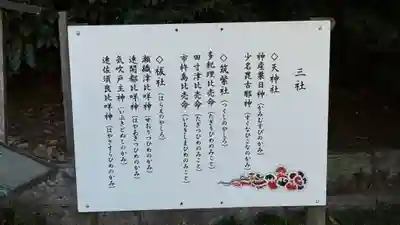 三社
◇天神社
神産巣日神(かみむすびのかみ)
少名毘古那神(すくなひこなのかみ)
◇筑紫社(つくしのやしろ)
多紀理比売命(たぎりひめのみこと)
田寸津比売命(たぎつひめのみこと)
市杵島比売命(いちきしまひめのみこと)
◇祓社(はらえのやしろ)
瀬織津比咩神(せおりつひめのかみ)
速開都比咩神(はやあきつひめのかみ)
気吹戸主神(いぶきどぬしのかみ)
速佐須良比咩神(はやさすらひめのかみ)